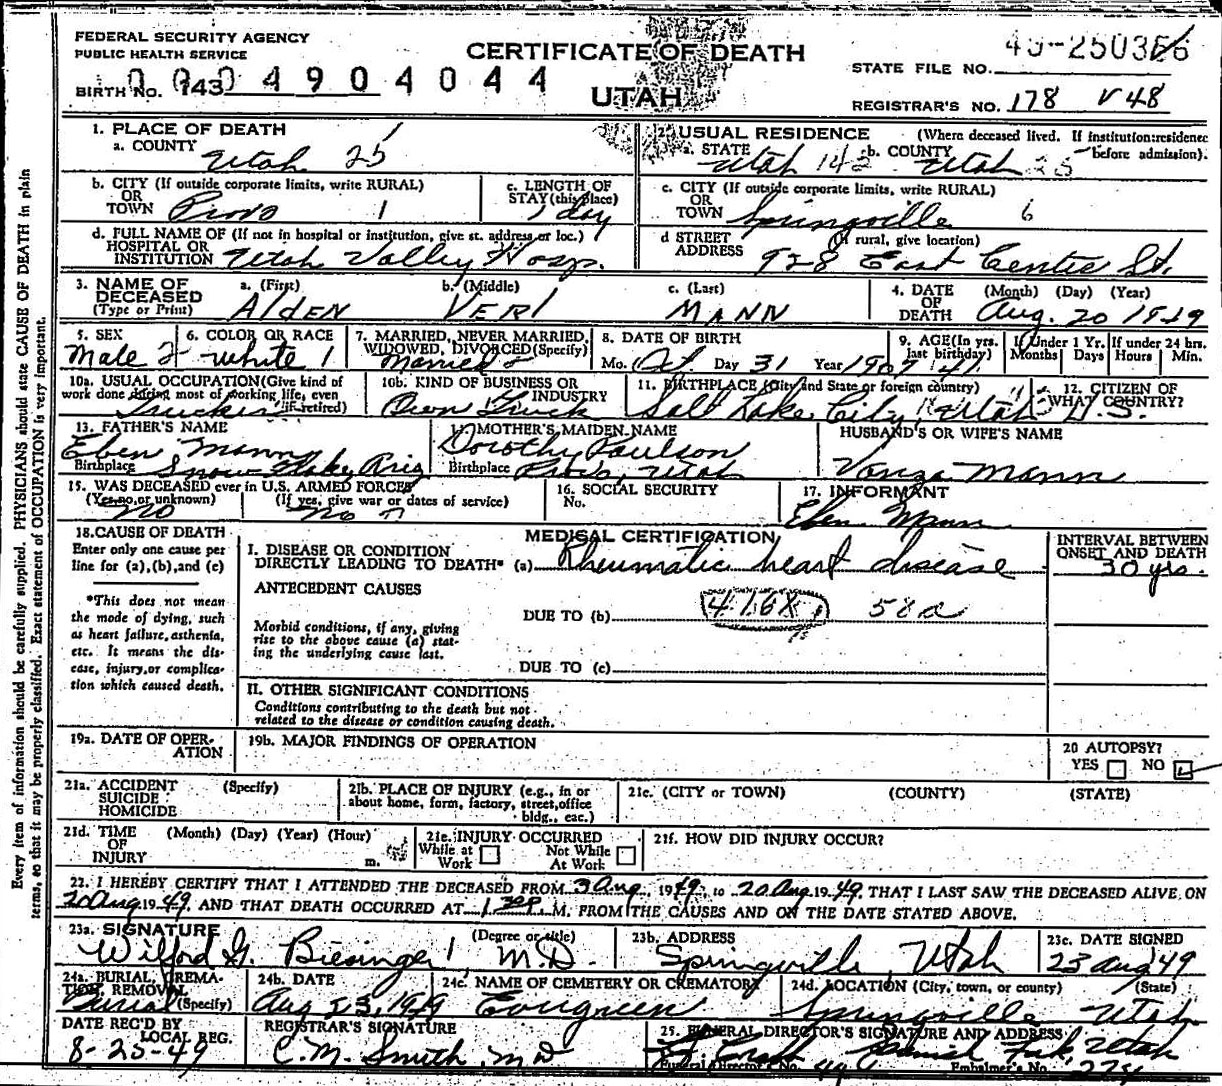 FEDERAL SECURITY AGENCY
PUBLIC HEALTH SERVICE
CERTIFICATE OF DEATH
UTAH
BIRTH NO. 143 4904044
STATE FILE NO.
REGISTRAR'S NO. 178 V 48
1. PLACE OF DEATH
a. COUNTY Utah 25
2. USUAL RESIDENCE (Where deceased lived. If institution:residence before admission).
a. STATE Utah 142 b. COUNTY Utah 25
b. CITY (If outside corporate limits, write RURAL)
OR
TOWN Provo 1
c. LENGTH OF
STAY (this place)
1 day
c. CITY (If outside corporate limits, write RURAL)
OR
TOWN Springville 6
d. FULL NAME OF (If not in hospital or institution, give st. address or loc.)
HOSPITAL OR
INSTITUTION Utah Valley Hosp.
d STREET (If rural, give location)
ADDRESS 928 East Center St.
3. NAME OF
DECEASED
(Type or Print)
a. (First) b. (Middle) c. (Last)
Alden Verl Mann
4. DATE (Month) (Day) (Year)
OF
DEATH Aug. 20 1949
5. SEX
Male 2
6. COLOR OR RACE
white 1
7. MARRIED, NEVER MARRIED,
WIDOWED, DIVORCED(Specify)
Married 2
8. DATE OF BIRTH
Mo. Oct Day 31 Year 1907
9. AGE(In yrs.
last birthday)
41
If Under 1 Yr.
Months Days
If under 24 hrs.
Hours Min.
10a. USUAL OCCUPATION(Give kind of
work done during most of working life, even
if retired)
Trucker
10b. KIND OF BUSINESS OR
INDUSTRY
Own Truck
11. BIRTHPLACE (City and State or foreign country)
Salt Lake City, Utah
12. CITIZEN OF
WHAT COUNTRY?
U.S.
13. FATHER'S NAME
Eben Mann
Birthplace Snow flake, Ariz
14. MOTHER'S MAIDEN NAME
Dorothy Paulson
Birthplace Provo, Utah
HUSBAND'S OR WIFE'S NAME
Vonza Mann
15. WAS DECEASED ever in U.S. ARMED FORCES
(Yes,no,or unknown) (If yes, give war or dates of service)
No No
16. SOCIAL SECURITY
No.
17. INFORMANT
Eben Mann
18.CAUSE OF DEATH
Enter only one cause per
line for (a),(b),and (c)
*This does not mean
the mode of dying, such
as heart failure, asthenia,
etc. It means the dis-
ease, injury,or complica-
tion which caused death.
MEDICAL CERTIFICATION
I. DISEASE OR CONDITION
DIRECTLY LEADING TO DEATH* (a) Rheumatic heart disease
INTERVAL BETWEEN
ONSET AND DEATH
30 yrs.
ANTECEDENT CAUSES
DUE TO (b) 416X 58a
Morbid conditions, if any, giving
rise to the above cause (a) stat-
ing the underlying cause last.
DUE TO (c)
II. OTHER SIGNIFICANT CONDITIONS
Conditions contributing to the death but not
related to the disease or condition causing death.
19a. DATE OF OPER-
ATION
19b. MAJOR FINDINGS OF OPERATION
20 AUTOPSY?
YES NO
21a. ACCIDENT (Specify)
SUICIDE
HOMICIDE
21b. PLACE OF INJURY (e.g., in or
about home, form, factory, street,office
bldg., eac.)
21c. (CITY or TOWN) (COUNTY) (STATE)
21d. TIME (Month) (Day) (Year) (Hour)
OF
INJURY m.
21e. INJURY OCCURRED
While at Not While
Work At Work
21f. HOW DID INJURY OCCUR?
22. I HEREBY CERTIFY THAT I ATTENDED THE DECEASED FROM 3 Aug, 1949, to 20 Aug 1949, THAT I LAST SAW THE DECEASED ALIVE ON
20 Aug 1949, AND THAT DEATH OCCURRED AT M. FROM THE CAUSES AND ON THE DATE STATED ABOVE.
23a. SIGNATURE (Degree or title)
Wilford G. Biesinger, M.D.
23b. ADDRESS
Springville, Utah
23c. DATE SIGNED
23 Aug 49
24a. BURIAL, CREMA-
TION, REMOVAL
Burial (Specify)
24b. DATE
Aug 23, 1949
24c. NAME OF CEMETERY OR CREMATORY
Evergreen
24d. LOCATION (City, town, or county) (State)
Springville Utah
DATE REC'D BY
LOCAL REG.
8-25-49
REGISTRAR'S SIGNATURE
C. M. Smith, MD
25. FUNERAL DIRECTOR'S SIGNATURE AND ADDRESS
Spanish Fork, Utah
Funeral Director's No. Embalmer's No.
Every item of information should be carefully supplied. PHYSICIANS should state CAUSE OF DEATH in plain
terms, so that it may be properly classified. Exact statement of OCCUPATION is very important.